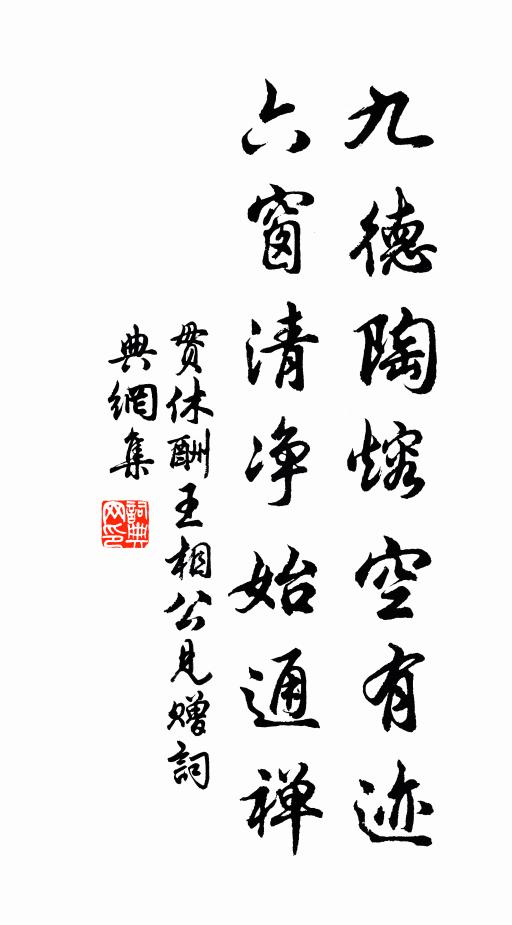 九德陶熔空有迹
六窗清净始通禅
贯休酬王相公见赠詞
典網集
詞典网印